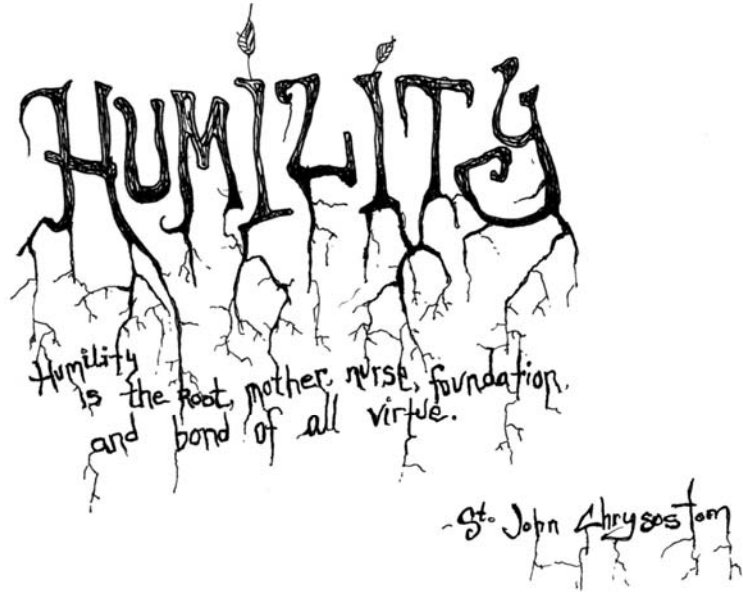 HUMILITY
Humility
is the Root, mother, nurse, foundation,
and bond of all virtue.
-St. John Chrysostom